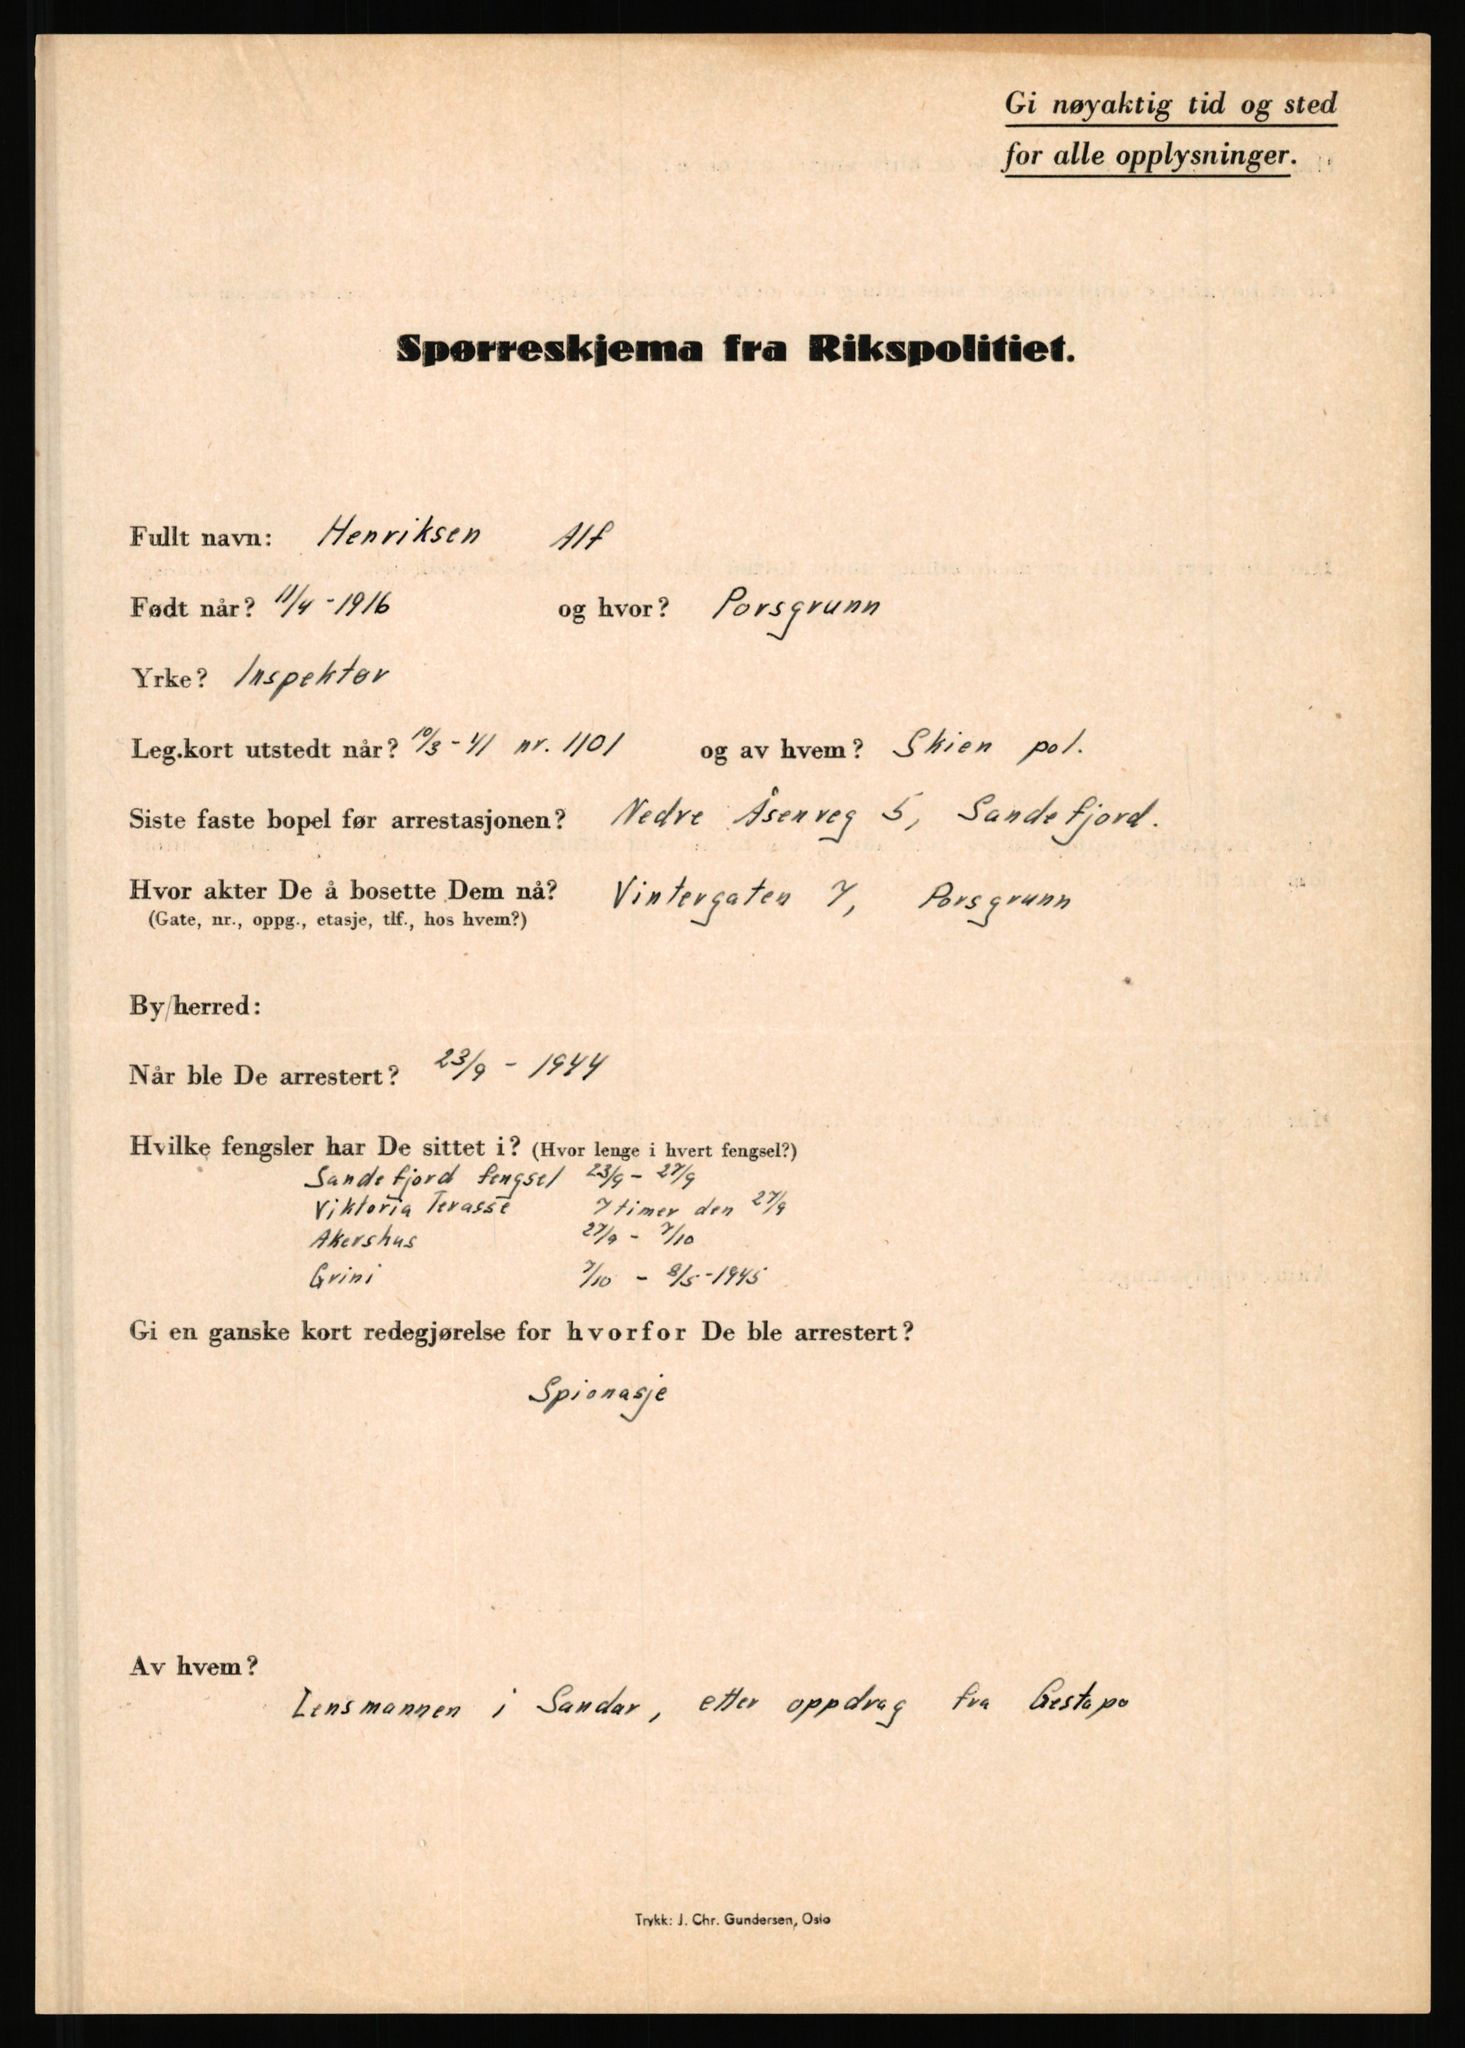 Gi nøyaktig tid og sted
for alle opplysninger.
Spørreskjema fra Rikspolitiet.
Fullt navn: Henriksen Alf
Født når? 11/4 - 1916 og hvor? Porsgrunn
Yrke? Inspektør
Leg.kort utstedt når? 10/3 - 41 nr. 1101 og av hvem? Skien pol.
Siste faste bopel før arrestasjonen? Nedre Åsenveg 5, Sandefjord.
Hvor akter De å bosette Dem nå? Vintergaten 7, Porsgrunn
(Gate, nr., oppg., etasje, tlf., hos hvem?)
By/herred:
Når ble De arrestert? 23/9 - 1944
Hvilke fengsler har De sittet i? (Hvor lenge i hvert fengsel?)
Sandefjord fengsel 23/9 - 27/9
Viktoria Terasse 7 timer den 27/9
Akershus 27/9 - 7/10
Grini 7/10 - 8/5 - 1945
Gi en ganske kort redegjørelse for hvorfor De ble arrestert?
Spionasje
Av hvem?
Lensmannen i Sandar, etter oppdrag fra Gestapo
Trykk: J. Chr. Gundersen, Oslo